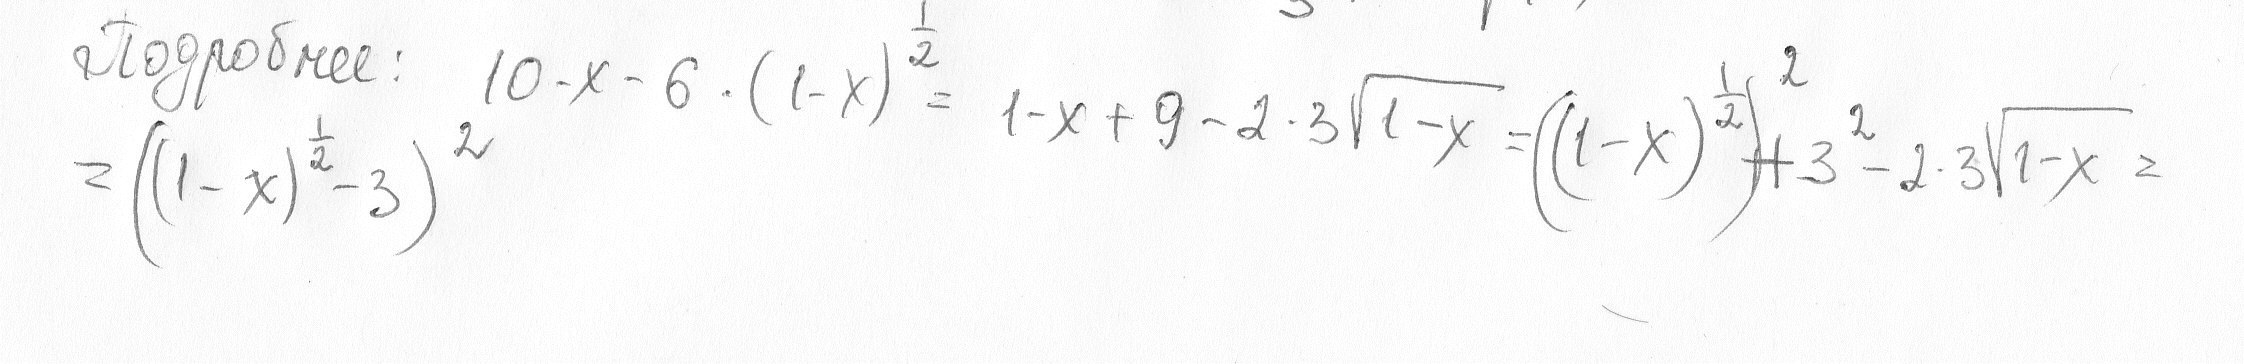 Подробнее: 10-x-6·(1-x)^{\frac{1}{2}} = 1-x+9-2·3√(1-x) = ((1-x)^{\frac{1}{2}})^2+3^2-2·3√(1-x) =
= ((1-x)^{\frac{1}{2}}-3)^2